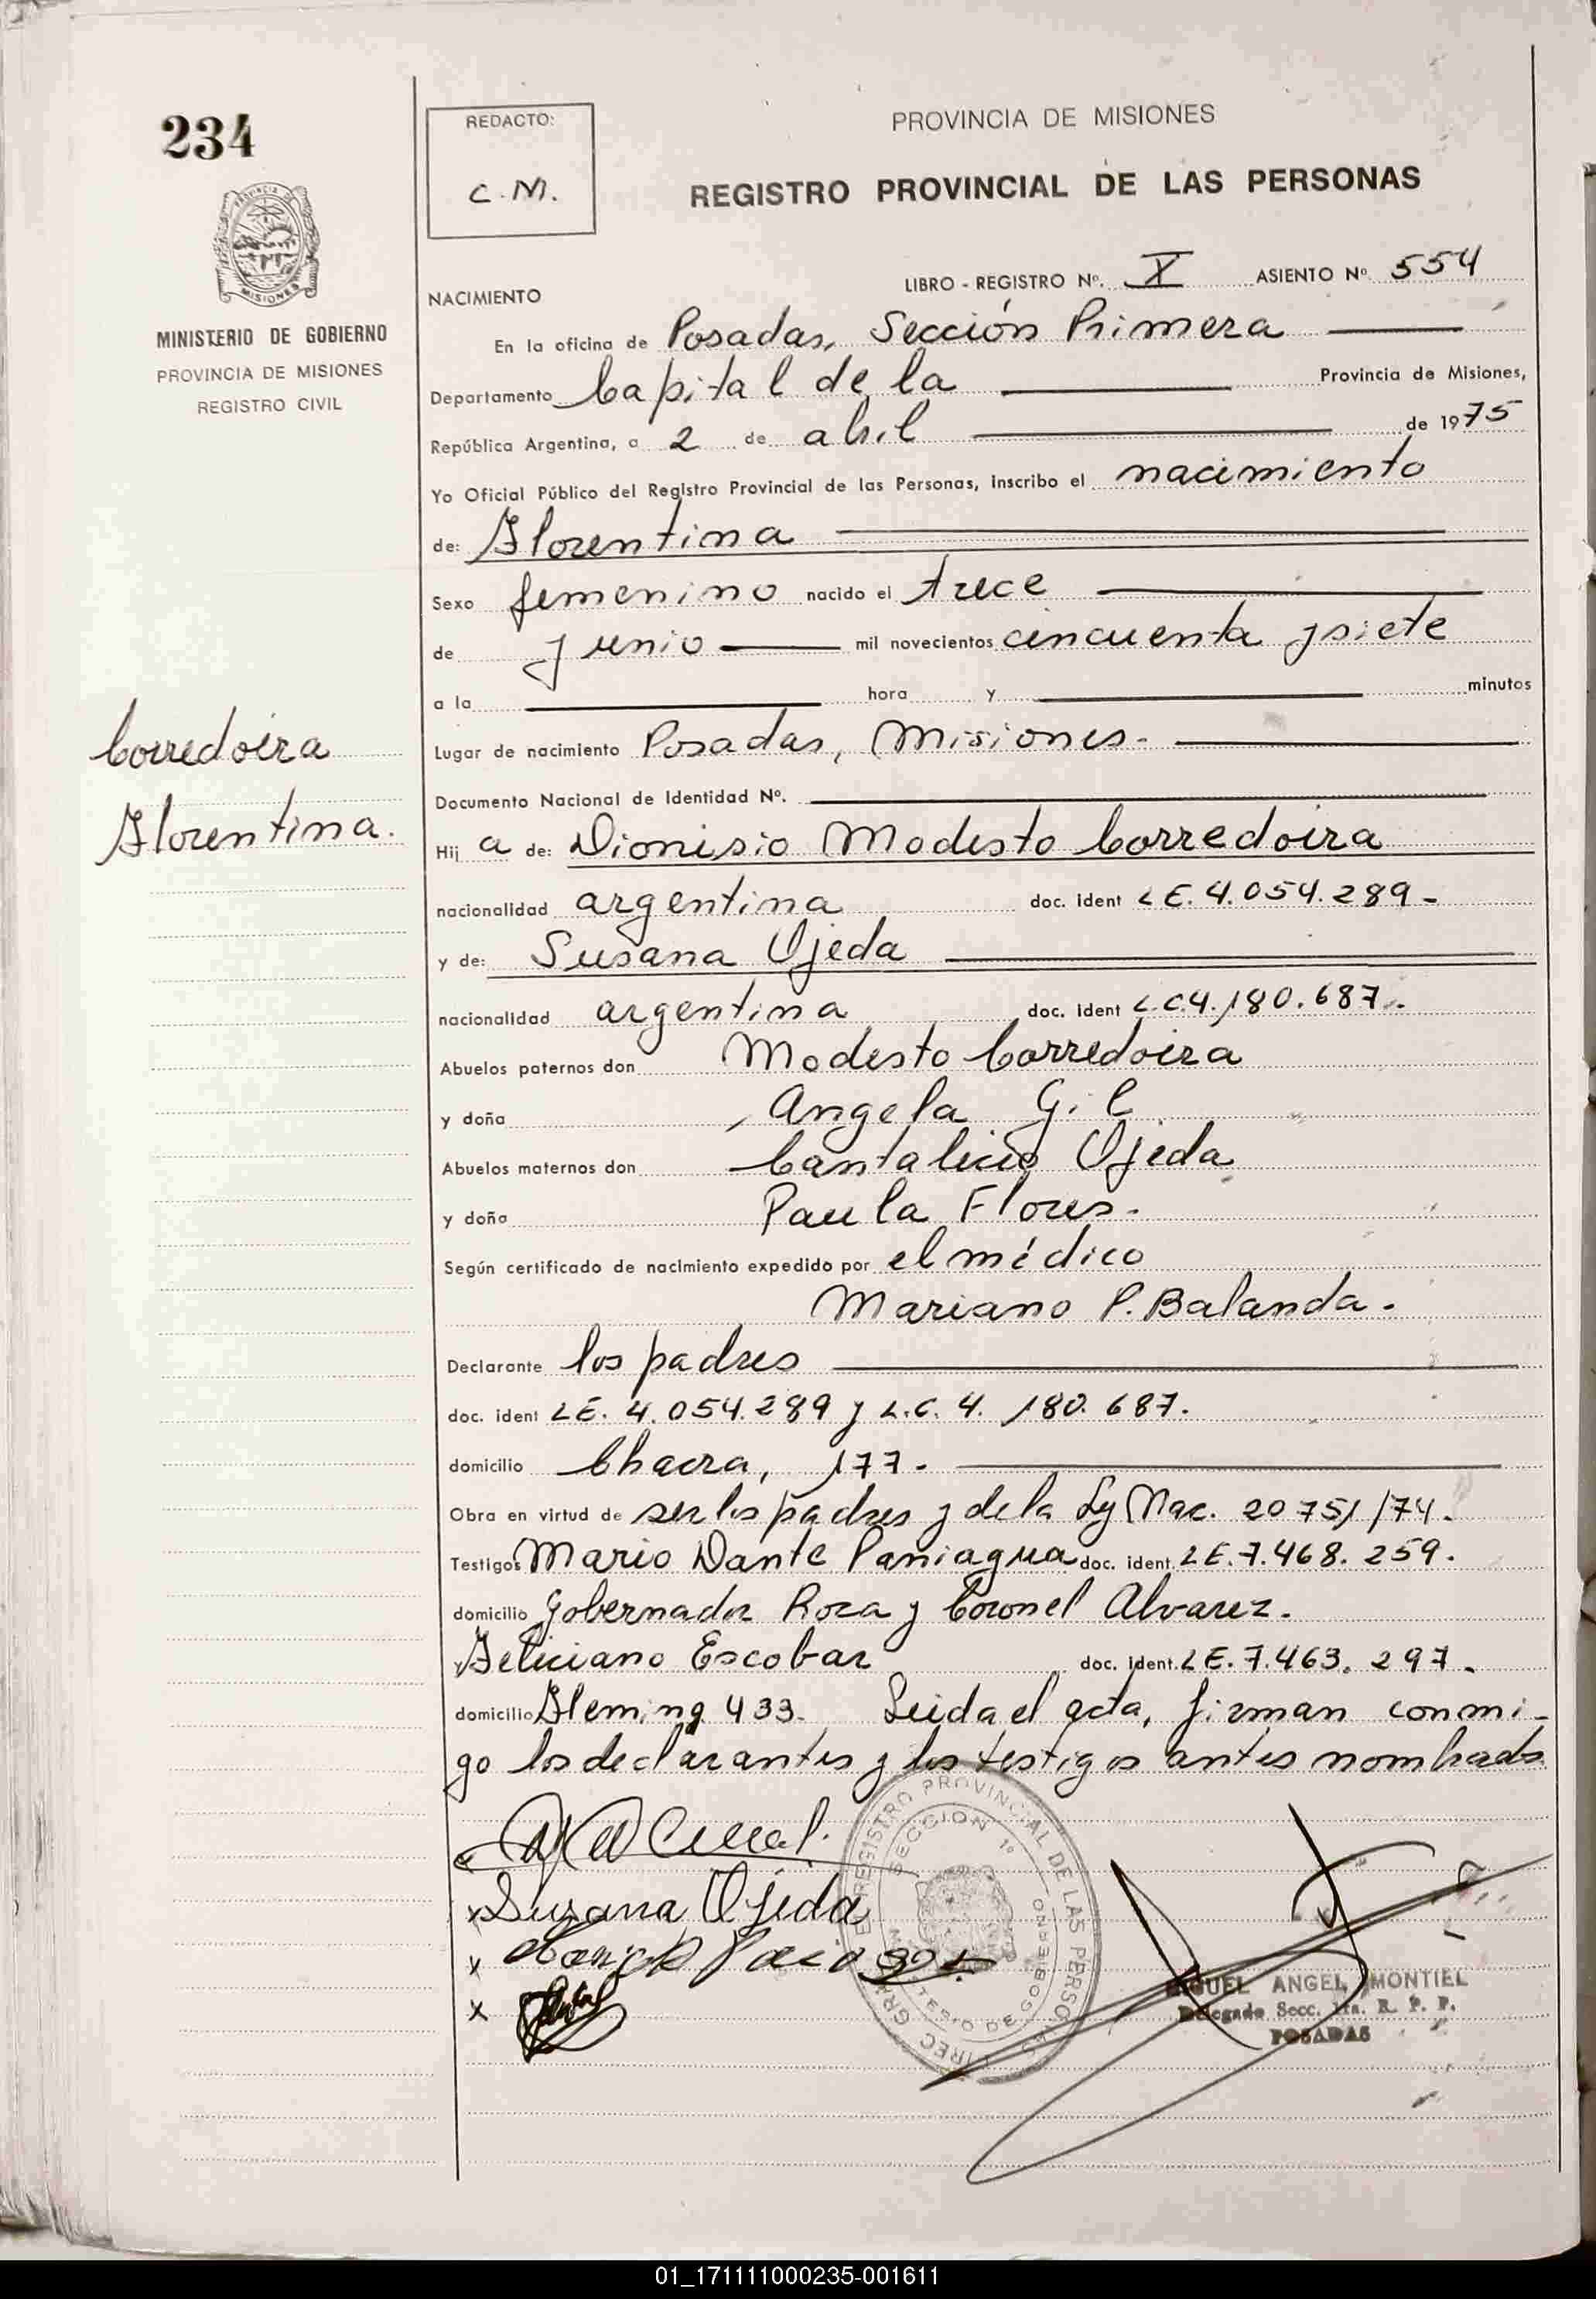 234
REDACTO:
C.M.
PROVINCIA DE MISIONES
REGISTRO PROVINCIAL DE LAS PERSONAS
MISIONES
MINISTERIO DE GOBIERNO
PROVINCIA DE MISIONES
REGISTRO CIVIL
LIBRO - REGISTRO Nº. X ASIENTO Nº 554
NACIMIENTO
En la oficina de Posadas, Sección Primera
Departamento Capital de la Provincia de Misiones,
República Argentina, a 2 de abril de 1975
Yo Oficial Público del Registro Provincial de las Personas, inscribo el nacimiento
de: Florentina
Sexo femenino nacido el trece
de junio mil novecientos cincuenta y siete
a la hora y minutos
Corredoira
Florentina.
Lugar de nacimiento Posadas, Misiones.
Documento Nacional de Identidad Nº.
Hij a de: Dionisio Modesto Corredoira
nacionalidad argentina doc. ident L E. 4.054.289-
y de: Susana Ojeda
nacionalidad argentina doc. ident L.C.4.180.687.
Abuelos paternos don Modesto Corredoira
y doña Angela Gil
Abuelos maternos don Cantalicio Ojeda
y doña Paula Flores.
Según certificado de nacimiento expedido por el médico
Mariano P. Balanda.
Declarante los padres
doc. ident L E. 4.054.289 y L.C. 4.180.687.
domicilio Chacra, 177.
Obra en virtud de ser los padres y de la Ley Nac. 20751/74.
Testigos Mario Dante Paniagua doc. ident. L E. 7.468.259.
domicilio Gobernador Roca y Coronel Alvarez.
y Feliciano Escobar doc. ident. L E. 7.463.297.
domicilio Fleming 433. Leida el acta, firman conmi-
go los declarantes y los testigos antes nombrado
x Susana Ojeda
x
x
REGISTRO PROVINCIAL DE LAS PERSONAS
SECCION 1º
MIGUEL ANGEL MONTIEL
Delegado Secc. 1ra. R. P. P.
POSADAS
01_171111000235-001611